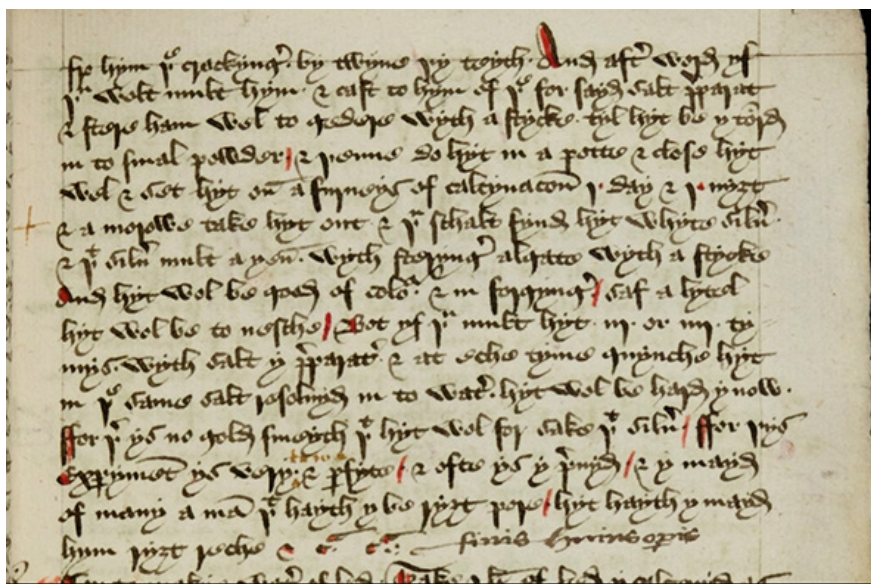 fro hym þe crackyng by twyme ry teych And aft word yf
þu wolt mult hym & cast to hym of þe for sayd salt preparat
& stere ham wel to gedere wyth a stycke tyl hyt be y tord
in to smal powder / & þenne do hyt in a potte & close hyt
wel & set hyt on a furneys of calcynacon i day & i nyzt
& a morowe take hyt out & þu schalt fynd hyt whyte silu
& þt silu mult a yen wyth steryng algate wyth a stycke
And hyt wol be good of colo & in forgyng / saf a lytel
hyt wol be to nesche / Bot yf þu mult hyt iii or iiii ty
mys wyth salt y preparat & at eche tyme quynche hyt
in þe same salt resoluyd in to wat hyt wol be hard y now
ffor þr ys no gold smeych þt hyt wol for sake þt silu / ffor þys
Experyment ys very & perfyte / & ofte ys y preuyd / & y mayd
of many a man þt hayth y be ryzt pore / hyt hayth y mayd
hym ryzt reche & c finis huius operis